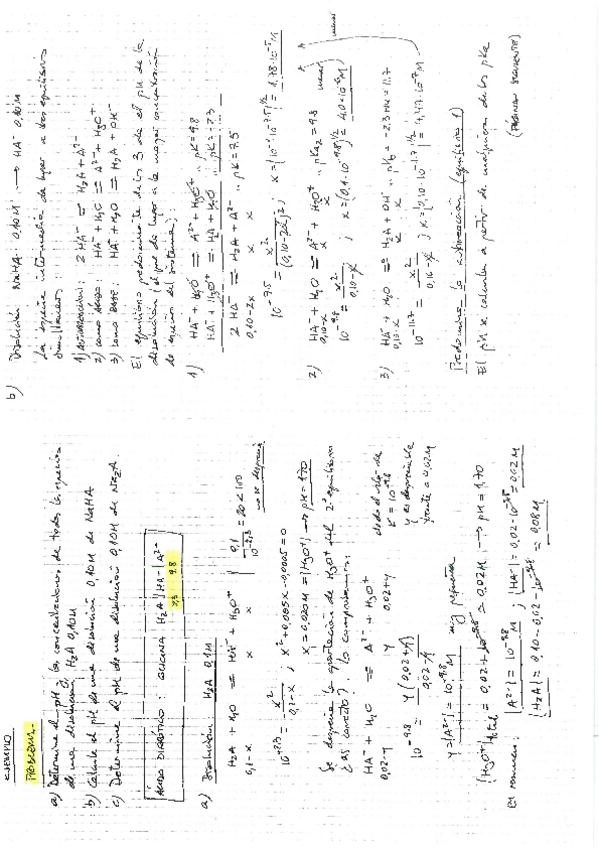 EJEMPLO
PROBLEMA.-
a) Determine el pH y las concentraciones de todas las especies
de una disolución H₂A 0,10M
b) Calcule el pH de una disolución 0,10M de NaHA
c) Determine el pH de una disolución 0,10M de Na₂A.
ÁCIDO DIPRÓTICO: GLICINA H₂A | HA⁻ | A²⁻
2,3 9.8
a) Disolución H₂A 0,1M
H₂A + H₂O ⇌ HA⁻ + H₃O⁺
0,1-x x x
0,1 / 10^-2,3 = 20 < 100
no se desprecia
10^-2,3 = x² / 0,1-x ; x² + 0,005x - 0,0005 = 0
x = 0,020M = |H₃O⁺| → pH = 1,70
Se desprecia la aportación de H₃O⁺ del 2º equilibrio
¿es correcto? lo comprobamos:
HA⁻ + H₂O ⇌ A²⁻ + H₃O⁺
0,02-y y 0,02+y
dado el valor de
K = 10^-9.8
y es despreciable
frente a 0,02M
10^-9.8 = y(0,02+y) / 0,02-y
y = |A²⁻| = 10^-9.8 M muy pequeña
|H₃O⁺| total = 0,02 + 10^-9.8 ≃ 0,02M → pH = 1,70
En resumen: |A²⁻| = 10^-9.8 M ; |HA⁻| = 0,02 - 10^-9.8 = 0,02M
|H₂A| = 0,10 - 0,02 - 10^-9.8 = 0,08M
b) Disolución NaHA 0,10M → HA⁻ 0,10M
La especie intermedia da lugar a tres equilibrios
simultáneos:
1) 2HA⁻ ⇌ H₂A + A²⁻
2) como ÁCIDO: HA⁻ + H₂O ⇌ A²⁻ + H₃O⁺
3) como BASE: HA⁻ + H₂O ⇌ H₂A + OH⁻
El equilibrio predominante de los 3 da el pH de la
disolución (el que da lugar a la mayor concentración
de especies del sistema):
1) HA⁻ + H₂O ⇌ A²⁻ + H₃O⁺ .. pK = 9.8
HA⁻ + H₃O⁺ ⇌ H₂A + H₂O .. pK = -2.3
2 HA⁻ ⇌ H₂A + A²⁻ .. pK = 7.5
0,10-2x x x
10^-7.5 = x² / (0,10-2x)² ; x = (10^-2 · 10^-7.5)^1/2 = 1,78·10^-5 M
2) HA⁻ + H₂O ⇌ A²⁻ + H₃O⁺ .. pKa₂ = 9.8
0,10-x x x
10^-9.8 = x² / 0,10-x ; x = (0,1·10^-9.8)^1/2 = 4,0·10^-6 M
3) HA⁻ + H₂O ⇌ H₂A + OH⁻ .. pKb = -2.3+14 = 11.7
0,10-x x x
10^-11.7 = x² / 0,10-x ; x = (0,10·10^-11.7)^1/2
Predomina la (equilibrio 1)
El pH se calcula a partir de los pKa
(PÁGINA SIGUIENTE)